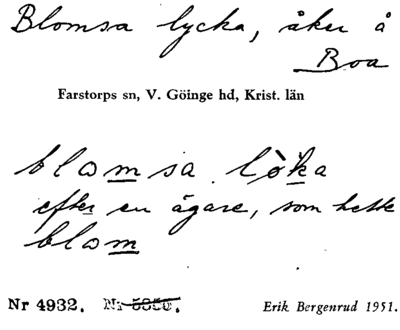 Blomsa lycka, åker å
Boa
Farstorps sn, V. Göinge hd, Krist. län
blomsa lò̀ka
efter en ägare, som hette
blom
Nr 4932. Nr 5850.
Erik Bergenrud 1951.